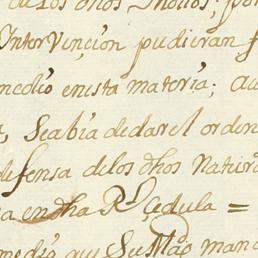 de los dhos Indios, por
Intervención pudieran
medio enesta materia; au
seabia dedarel orden
defensa delos dhos Natura
en dha Rl. Cedula =
medio que Su Mag. manda